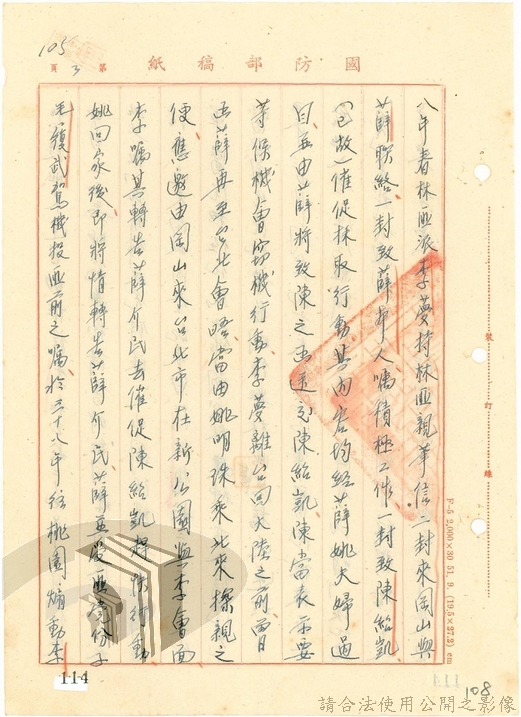 國防部稿紙
第3頁
105
八年春林匪派李蔓持林匪親筆信二封來岡山與
薛聯絡一封致薛本人囑積極工作一封致陳紹凱
(已故)催促採取行動其內容均經薛姚夫婦過
目並由薛將致陳之函送交陳紹凱陳當表示要
等候機會劫機行動李蔓離台回大陸之前曾
函薛再至台北會晤當由姚明珠乘北來探親之
便應邀由岡山來台北市在新公園與李會面
李囑其轉告薛介民去催促陳紹凱趕快行動
姚回家後即將情轉告薛介民薛並受匪諜份子
毛履武駕機投匪前之囑於三十八年往桃園煽動李
裝訂線
F-5 2,000×30 51. 9. (19.5×27.2) cm
114
108
請合法使用公開之影像